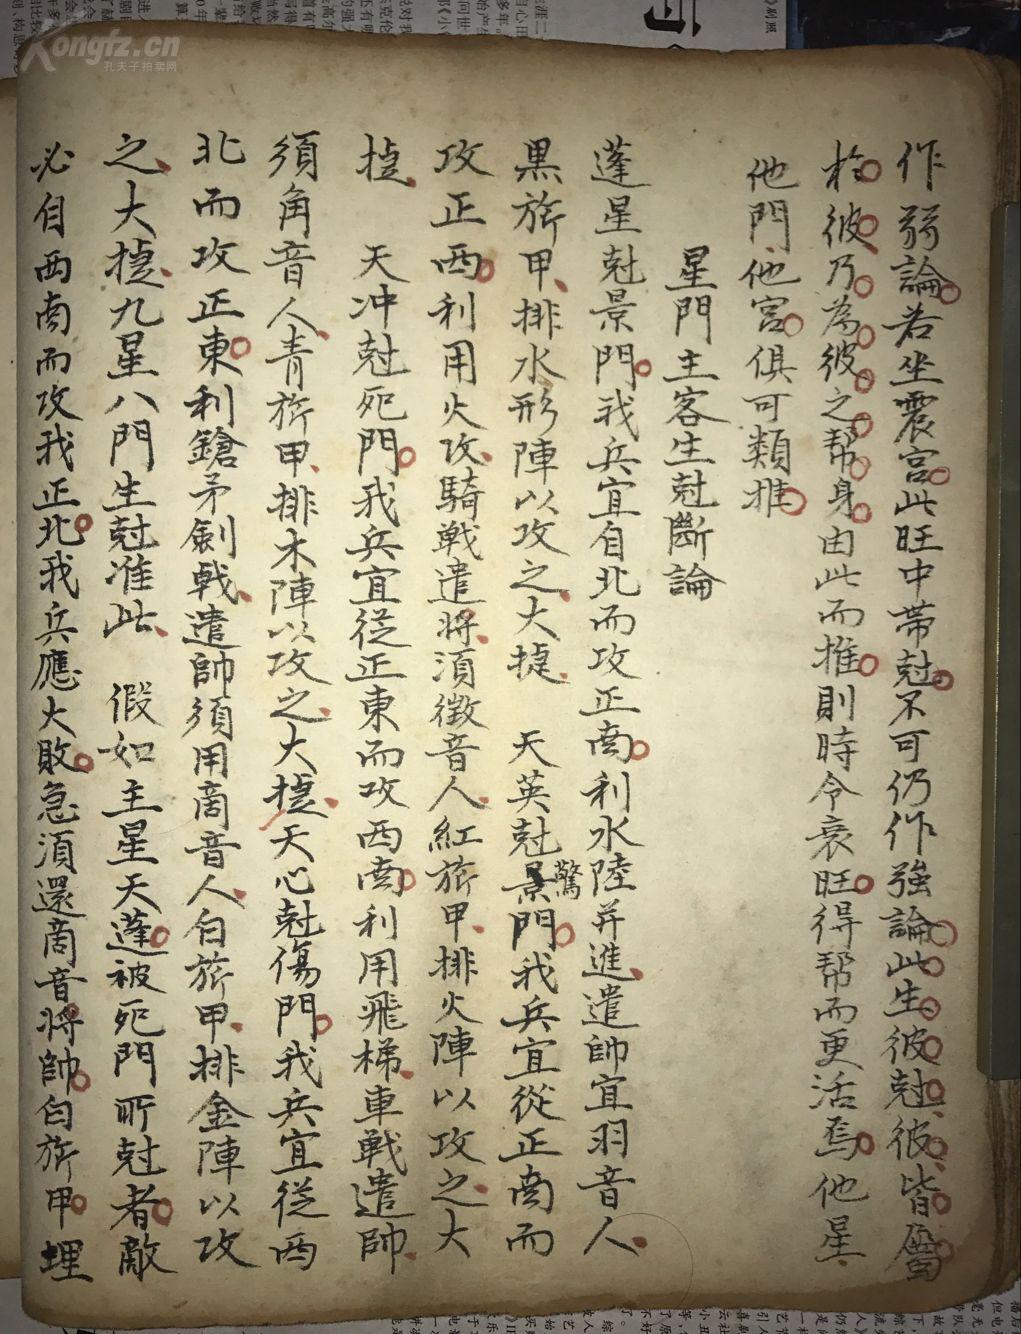 作弱論若坐震宮此旺中帶尅不可仍作強論此生彼尅彼皆屬
於彼乃為彼之幫身由此而推則時令衰旺得幫而更活焉他星
他門他宮俱可類推
星門主客生尅斷論
蓬星尅景門我兵宜自北而攻正南利水陸并進遣帥宜羽音人
黑旂甲排水形陣以攻之大捷 天英尅驚門我兵宜從正南而
攻正西利用火攻騎戰遣將須徵音人紅旂甲排火陣以攻之大
捷 天冲尅死門我兵宜從正東而攻西南利用飛梯車戰遣帥
須角音人青旂甲排木陣以攻之大捷天心尅傷門我兵宜從西
北而攻正東利鎗矛劍戟遣帥須用商音人白旂甲排金陣以攻
之大捷九星八門生尅准此 假如主星天蓬被死門所尅者敵
必自西南而攻我正北我兵應大敗急須還商音將帥白旂甲埋
Kongfz.cn
孔夫子拍卖网